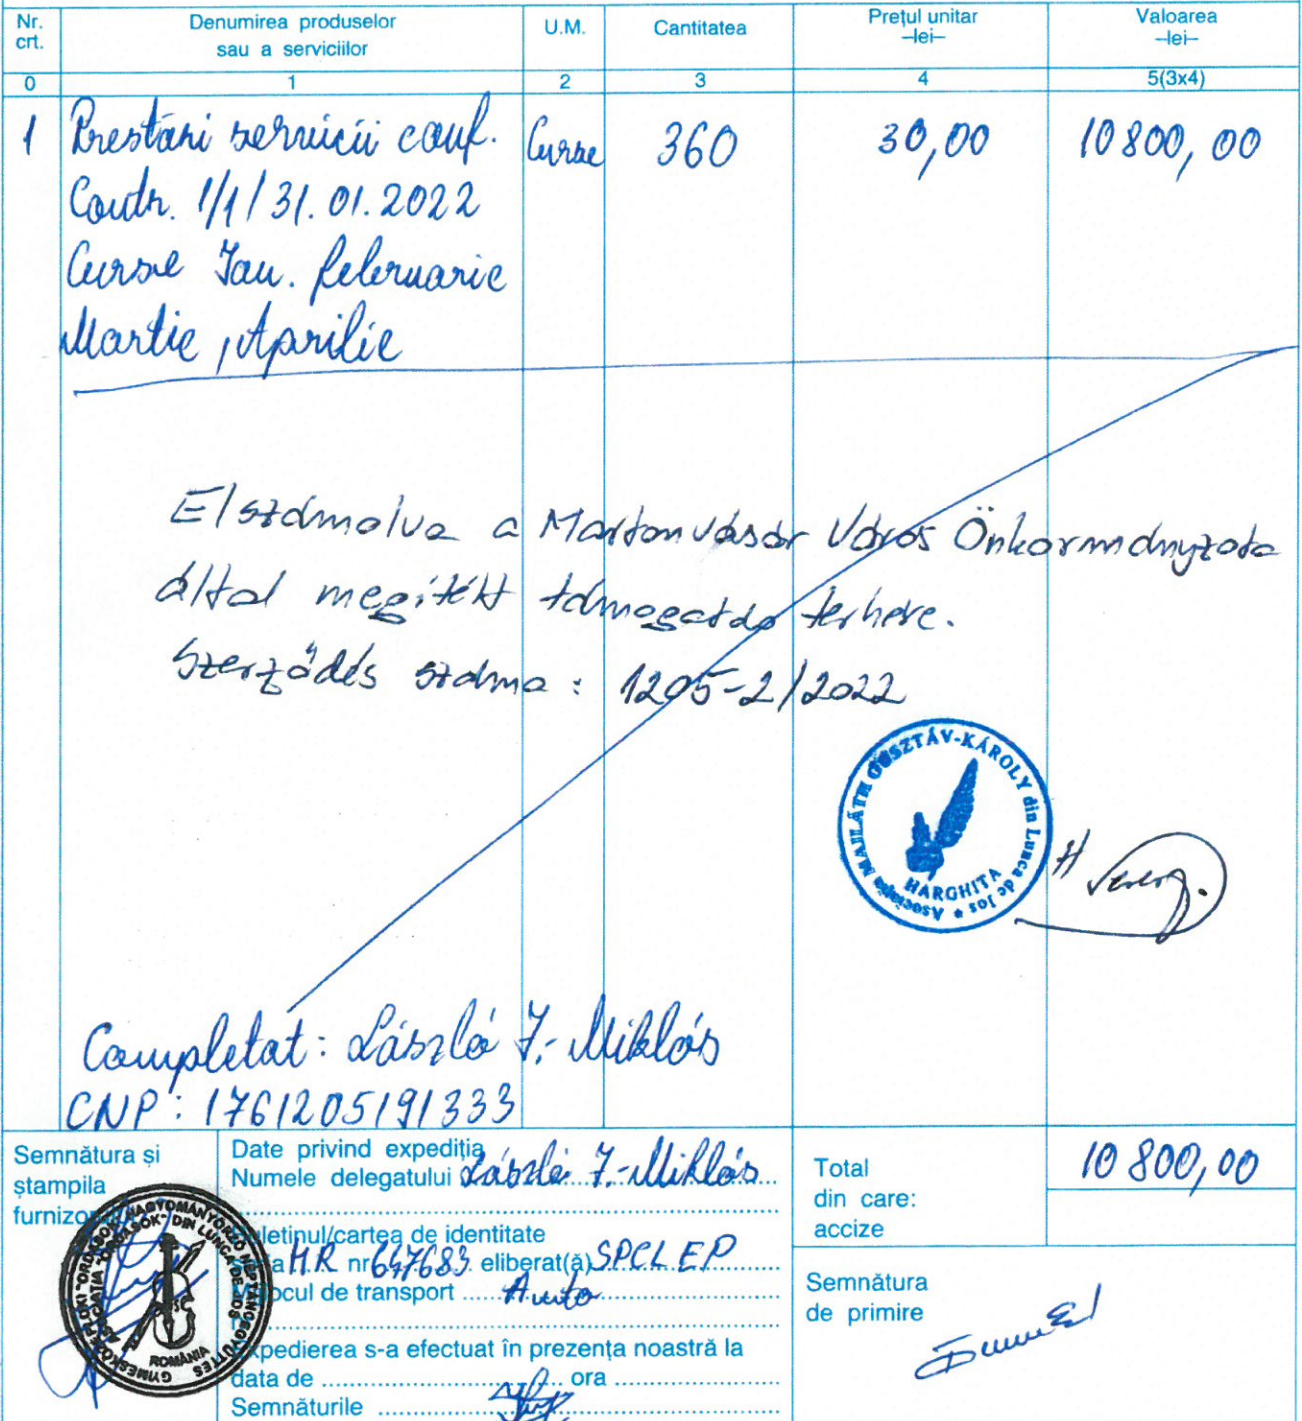 Nr. crt. Denumirea produselor sau a serviciilor U.M. Cantitatea Prețul unitar –lei– Valoarea –lei–
0 1 2 3 4 5(3x4)
1 Prestări servicii conf. Curse 360 30,00 10800,00
Contr. 1/1/31.01.2022
Curse Ian. februarie
Martie, Aprilie
Elszámolva a Martonvásár Város Önkormányzata
által megítélt támogatás terhére.
Szerződés száma: 1205-2/2022
Asociația MAJLÁTH GUSZTÁV-KÁROLY din Lunca de Jos *
HARGHITA
Completat: László I.-Miklós
CNP: 1761205191333
Semnătura și
ștampila
Date privind expediția
Numele delegatului László I.-Miklós
identitate
HR nr 647683 eliberat(ă) SPCLEP
de transport Auto
Expedierea s-a efectuat în prezența noastră la
data de ora
Semnăturile
ROMÂNIA
Total 10 800,00
din care:
accize
Semnătura
de primire